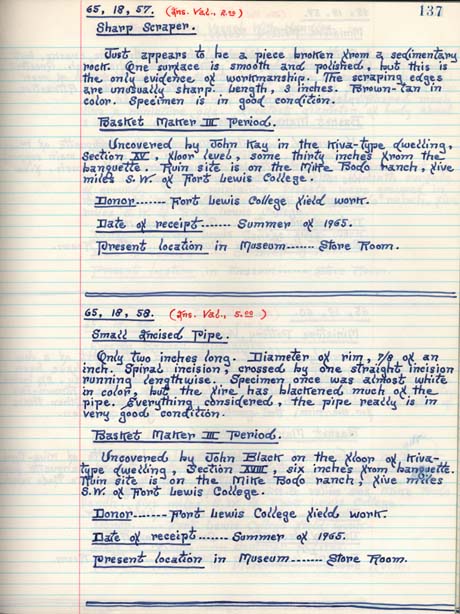 137
65, 18, 57. (Ins. Val., 2.00)
Sharp Scraper.
Just appears to be a piece broken from a sedimentary
rock. One surface is smooth and polished, but this is
the only evidence of workmanship. The scraping edges
are unusually sharp. Length, 3 inches. Brown-tan in
color. Specimen is in good condition.
Basket Maker III Period.
Uncovered by John Kay in the Kiva-type dwelling,
Section XV, floor level, some thirty inches from the
banquette. Ruin site is on the Mike Bodo ranch, five
miles S.W. of Fort Lewis College.
Donor------- Fort Lewis College field work.
Date of receipt------- Summer of 1965.
Present location in Museum------- Store Room.
65, 18, 58. (Ins. Val., 5.00)
Small Incised Pipe.
Only two inches long. Diameter of rim, 7/8 of an
inch. Spiral incision, crossed by one straight incision
running lengthwise. Specimen once was almost white
in color, but the fire has blackened much of the
pipe. Everything considered, the pipe really is in
very good condition.
Basket Maker III Period.
Uncovered by John Black on the floor of Kiva-
type dwelling, Section XVIII, six inches from banquette.
Ruin site is on the Mike Bodo ranch, five miles
S.W. of Fort Lewis College.
Donor------- Fort Lewis College field work.
Date of receipt------- Summer of 1965.
Present location in Museum------- Store Room.